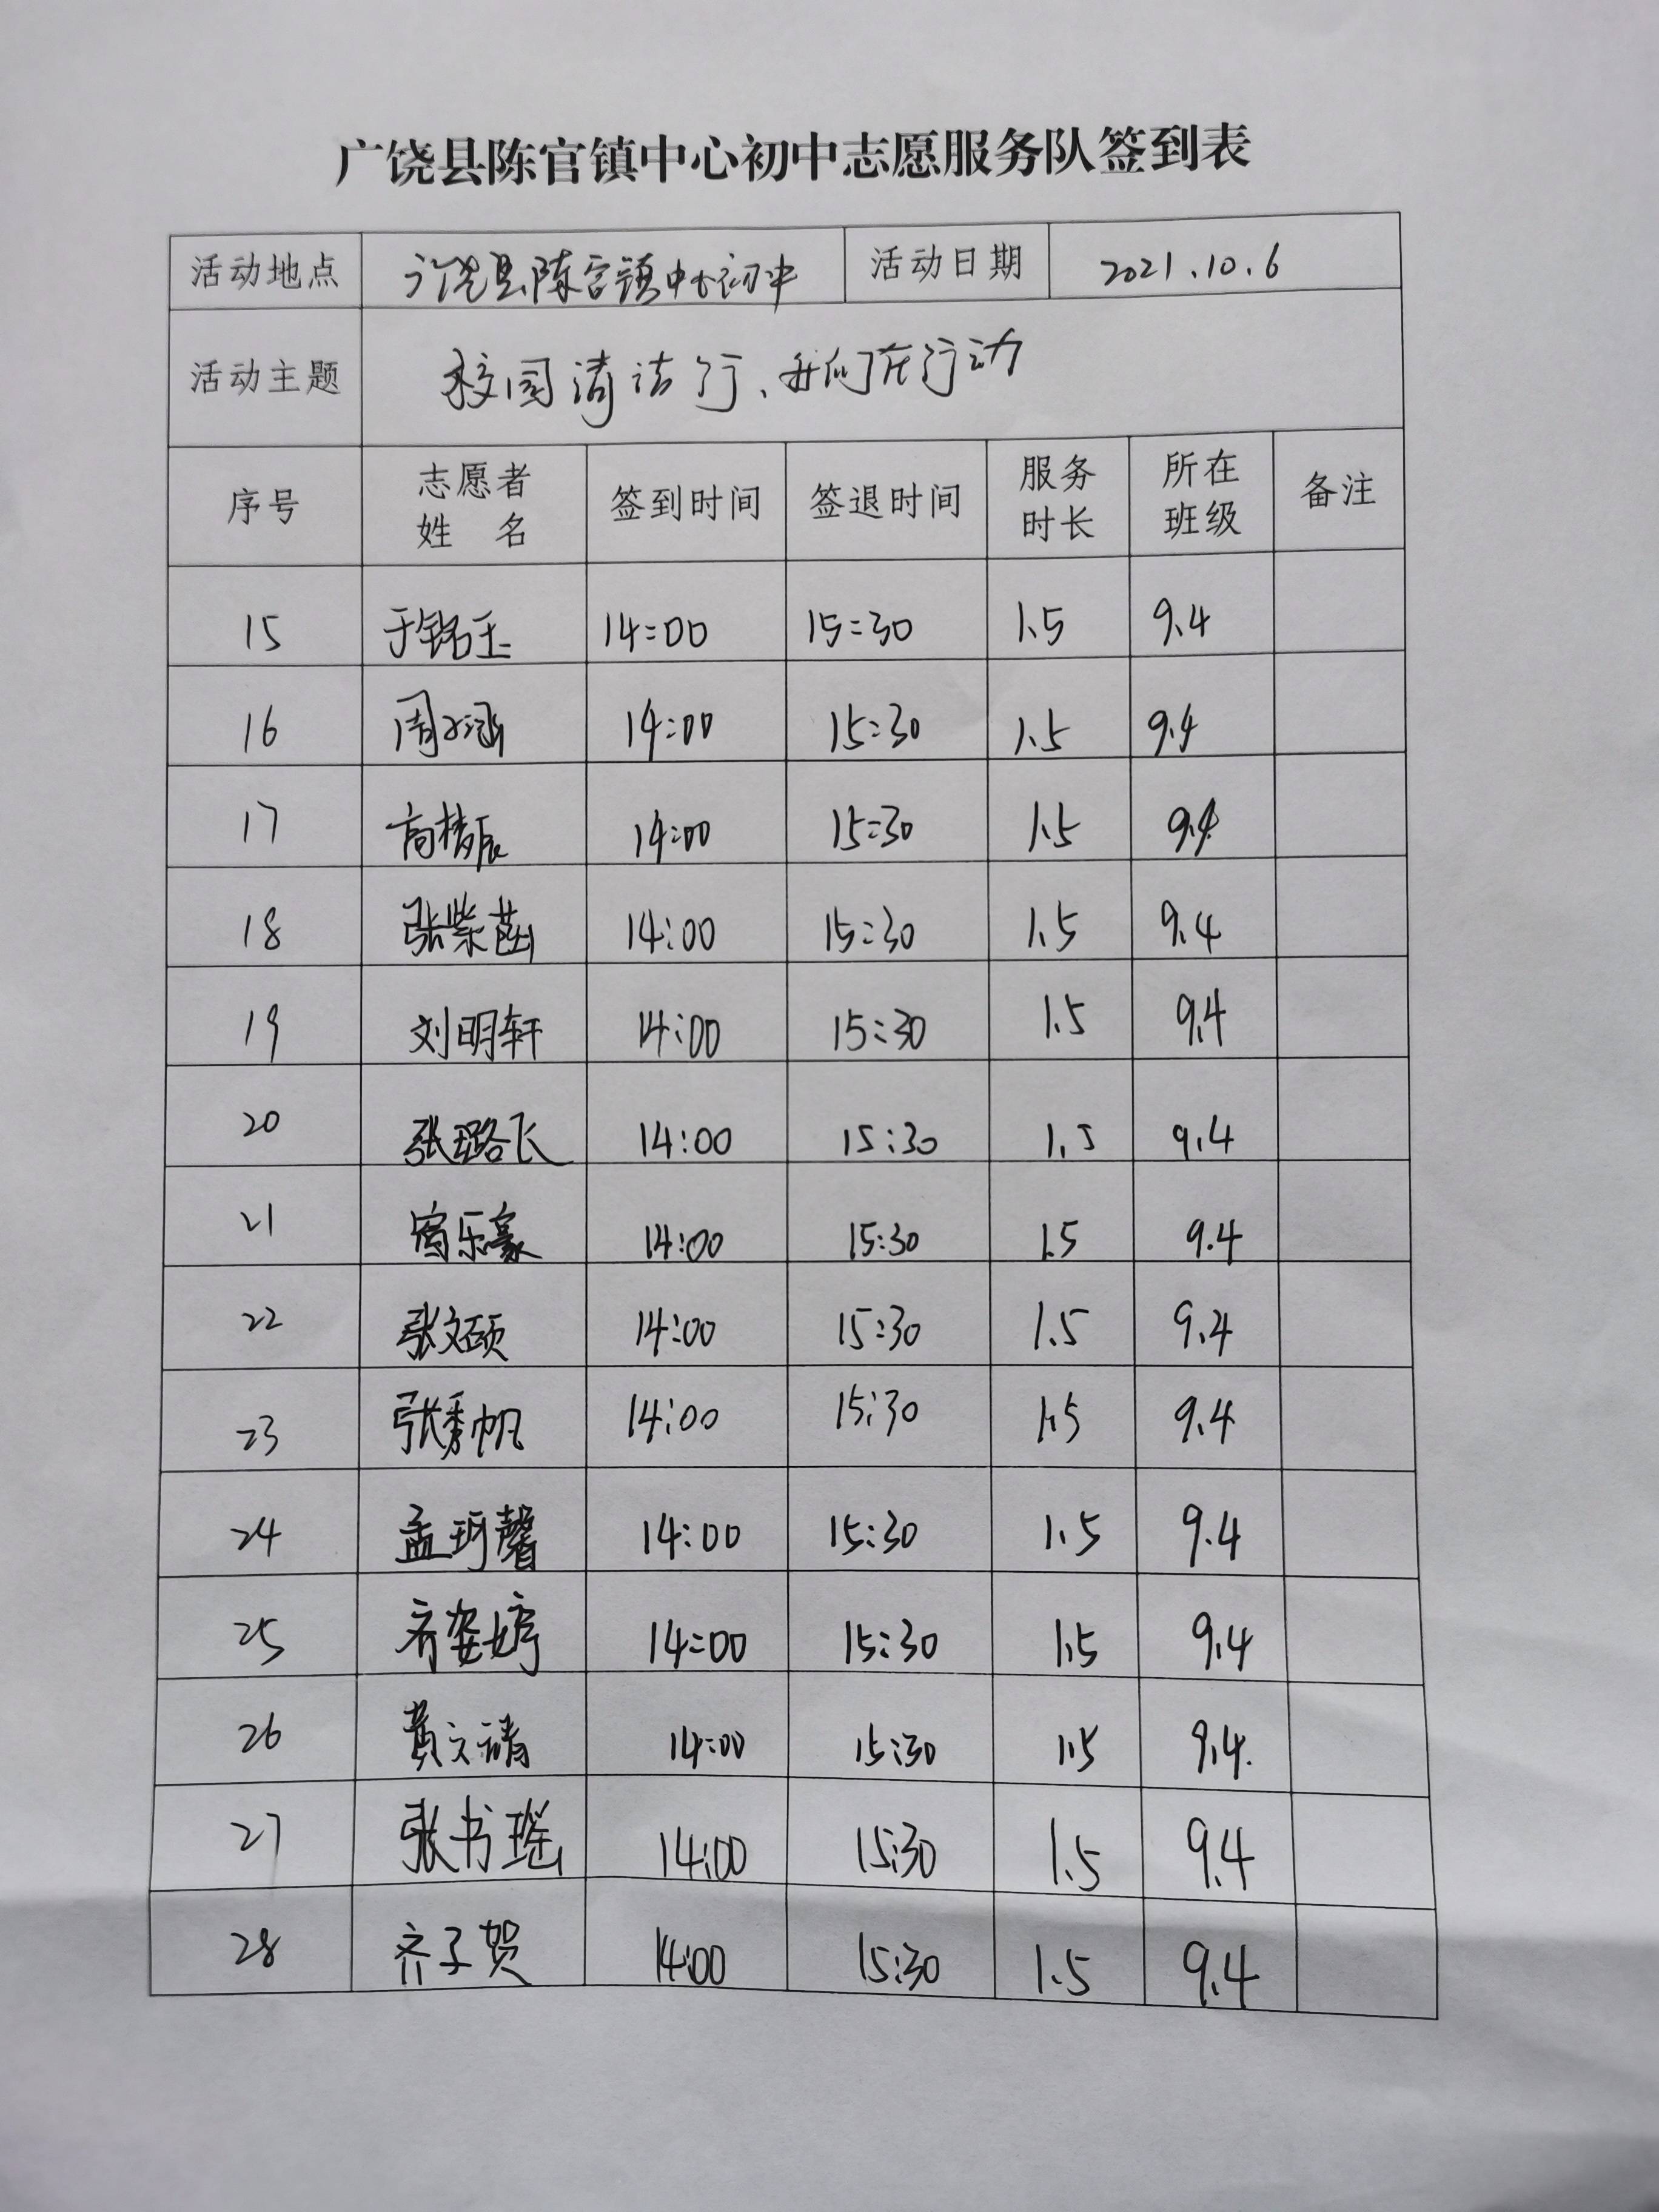 广饶县陈官镇中心初中志愿服务队签到表
活动地点 广饶县陈官镇中心初中 活动日期 2021.10.6
活动主题 校园清洁行、我们在行动
序号 志愿者姓 名 签到时间 签退时间 服务时长 所在班级 备注
15 于铭玉 14:00 15:30 1.5 9.4
16 周 涵 14:00 15:30 1.5 9.4
17 高楷辰 14:00 15:30 1.5 9.4
18 张紫菡 14:00 15:30 1.5 9.4
19 刘明轩 14:00 15:30 1.5 9.4
20 张璐飞 14:00 15:30 1.5 9.4
21 乐豪 14:00 15:30 1.5 9.4
22 张文硕 14:00 15:30 1.5 9.4
23 张秀帆 14:00 15:30 1.5 9.4
24 孟珂馨 14:00 15:30 1.5 9.4
25 齐姿婷 14:00 15:30 1.5 9.4
26 黄文靖 14:00 15:30 1.5 9.4.
27 张书瑶 14:00 15:30 1.5 9.4
28 齐子贺 14:00 15:30 1.5 9.4